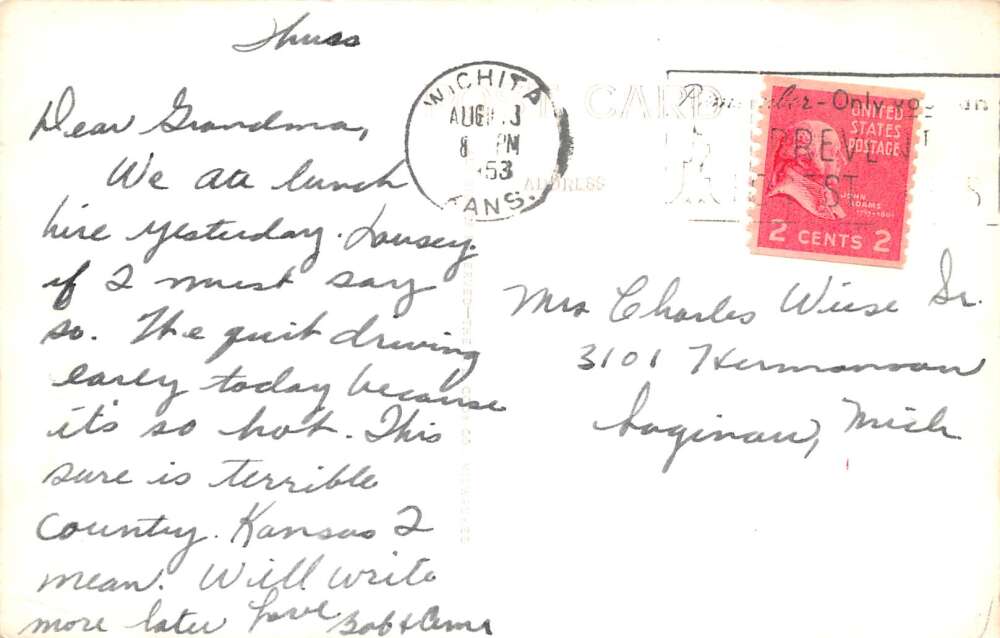 Thurs
Dear Grandma,
We ate lunch
here yesterday. Lousey
if I must say
so. The quit driving
early today because
it's so hot. This
sure is terrible
country. Kansas I
mean. Will write
more later Love Bob &
WICHITA
AUG 13
8 PM
1953
KANS.
CARD
ADDRESS
Remember - Only you can
PREVENT
FOREST
UNITED
STATES
POSTAGE
JOHN
ADAMS
1797-1801
2 CENTS 2
Mrs Charles Wiese Sr.
3101 Hermansau
Saginaw, Mich